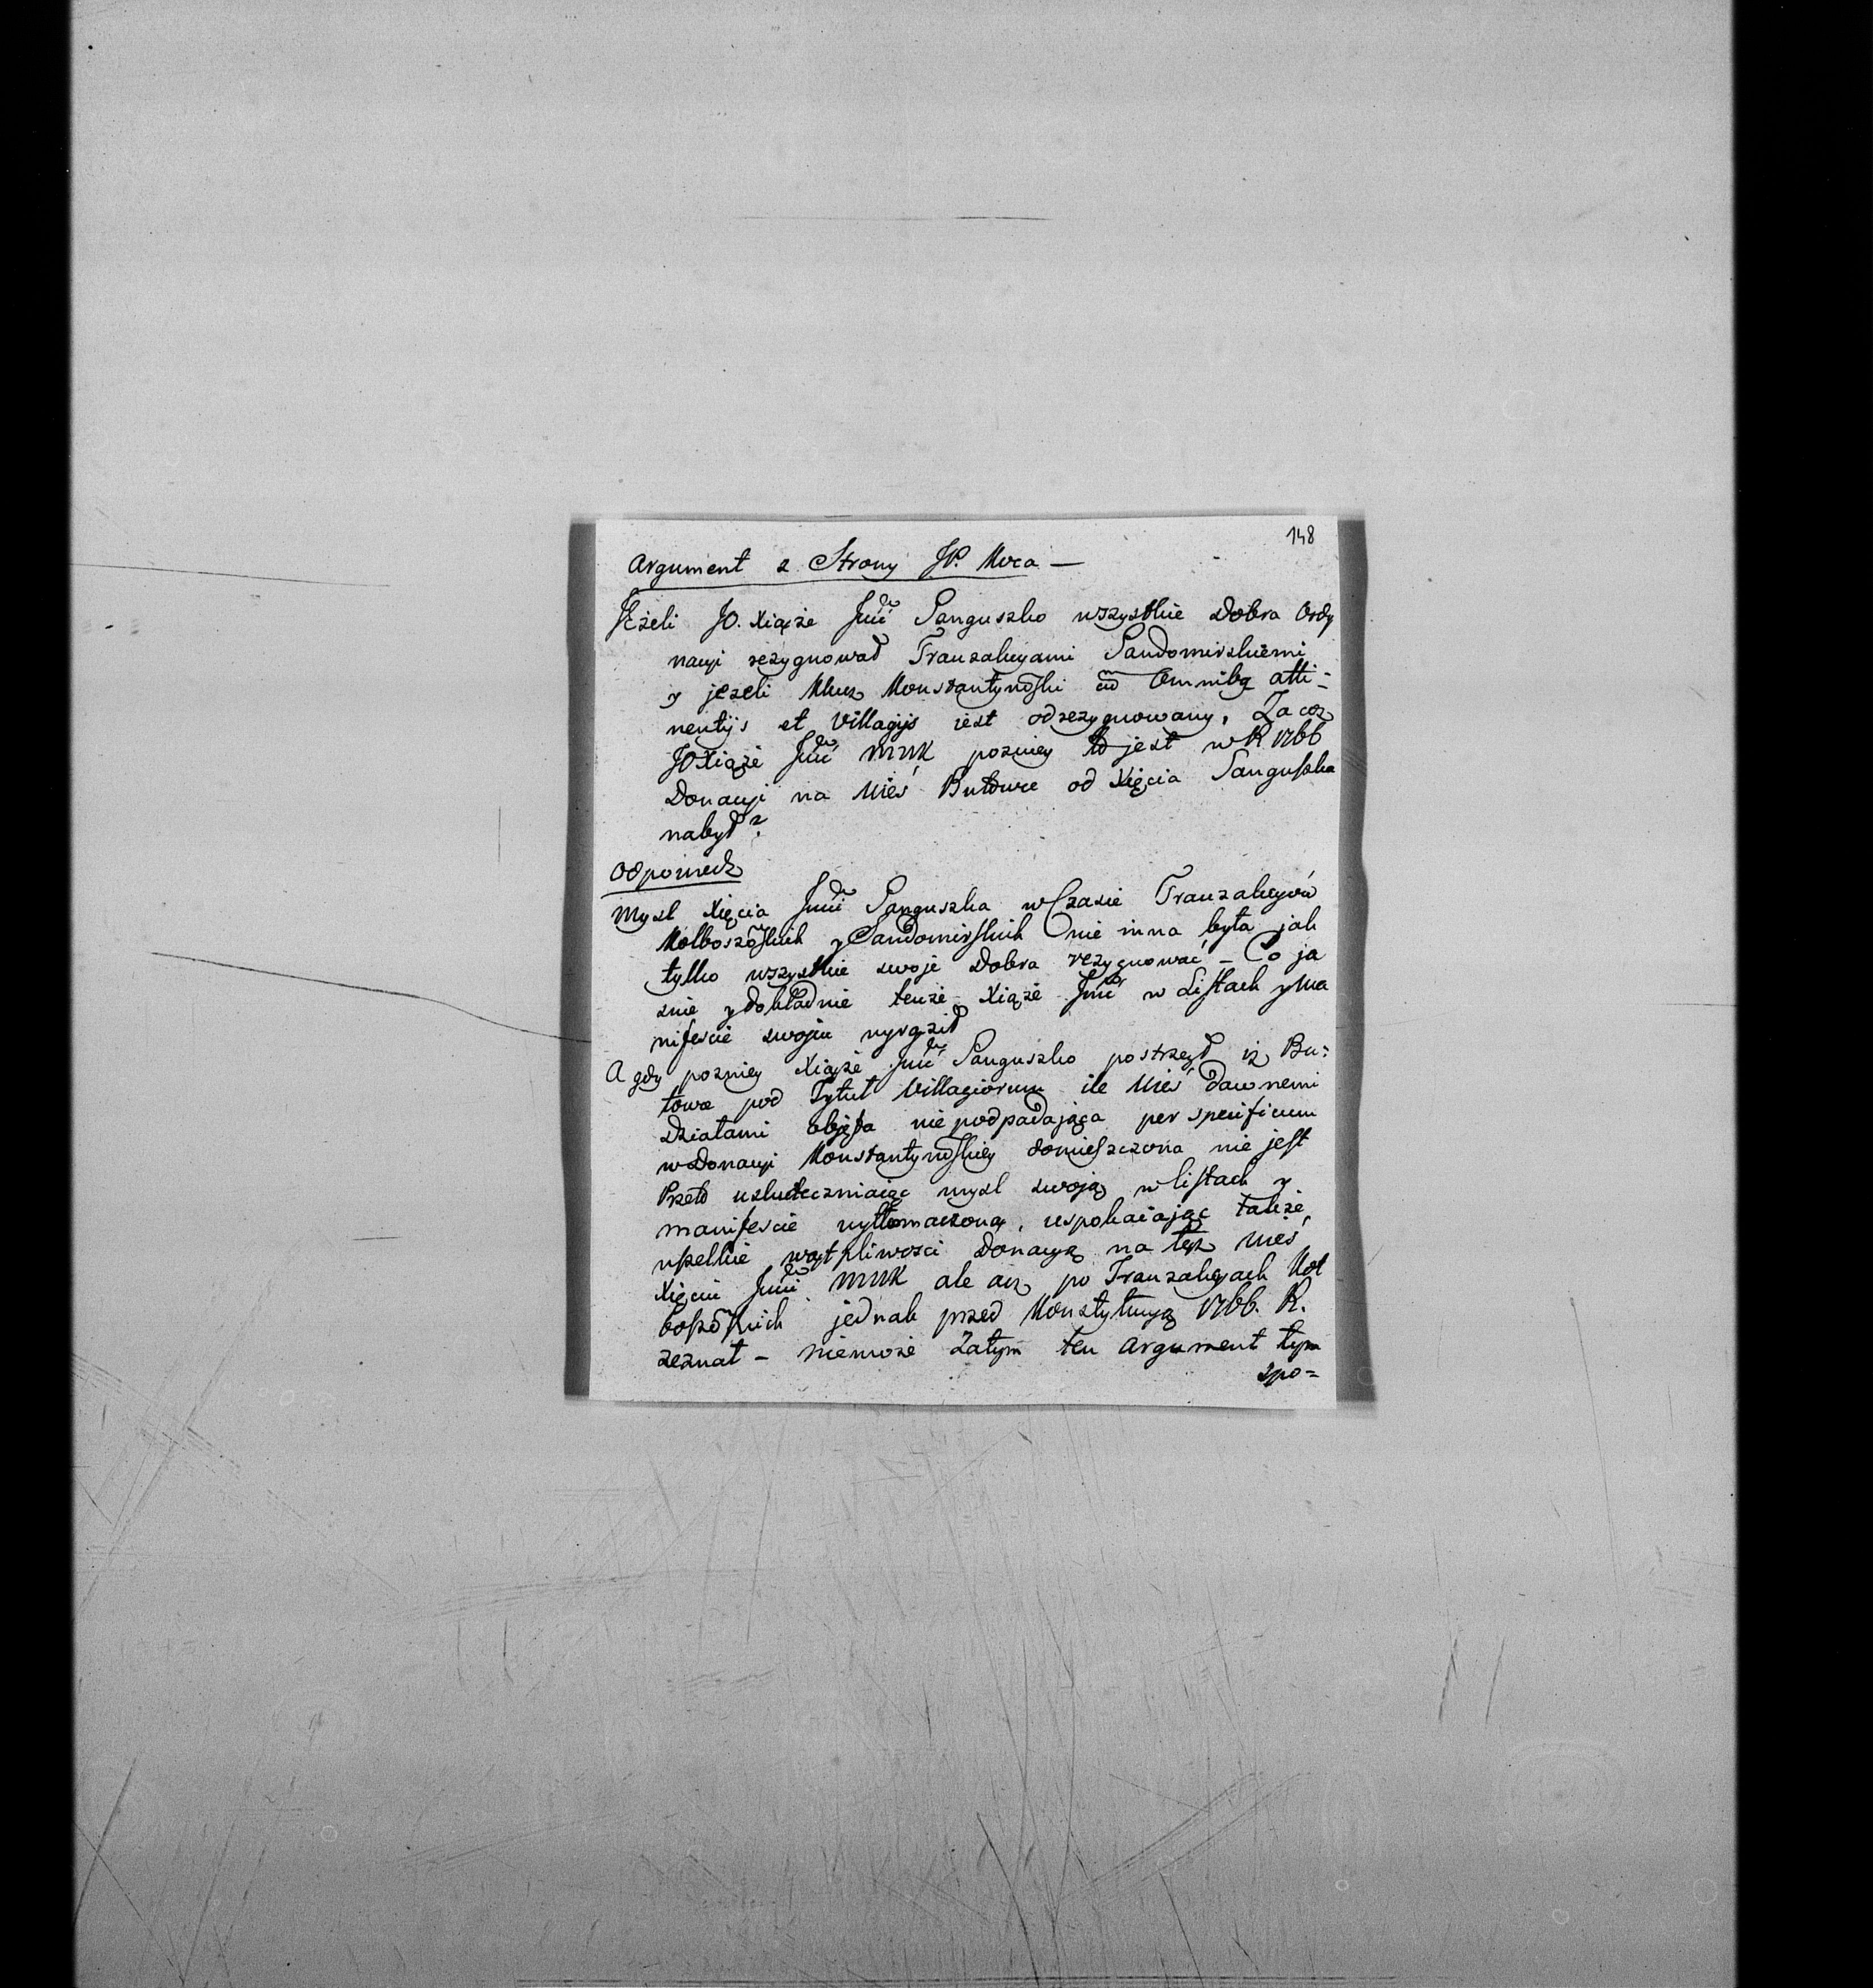 148
Argument z Strony JP. Koca —
Jeżeli JO. Xiąże Jmć Sanguszko wszystkie Dobra Ordy
nacyi rezygnował Tranzakcyami Sandomirskiemi
y jezeli Klucz Konstantynowski cum Omnibq atti=
nentijs et Villagijs iest odrezygnowany, Za coz
JO Xiąże Jmć MNK pozniey to jest w R 1766
Donacyi na Wieś Butowce od Xięcia Sanguszka
nabył?
Odpowiedz
Mysl Xięcia Jmći Sanguszka w Czasie Tranzakcyów
Kolboszowskich y Sandomirskich nie inna była jak
tylko wszystkie swoje Dobra rezygnować – Co ja
snie y dokładnie tenże Xiąże Jmć w Listach y Ma
nifescie swojm wyraził
A gdy pozniey Xiąże Jmć Sanguszko postrzegł iż Bu=
towce pod Tytuł Villagiorum ile Wieś dawnemi
działami objęta nie podpadająca per specificum
w Donacyi Konstantynowskiey domieszczona nie jest
Przeto uskuteczniaiąc mysl swoją w listach y
manifescie wytłomaczoną, uspokaiając takze
wszelkie wątpliwosci Donacyą na tęż Wieś
Xięciu Jmći MNK ale acz po Tranzakcyach Kol
boszowskich jednak przed Konstytucyą 1766. R.
zeznał – niemoże Zatym ten Argument tym
spo=